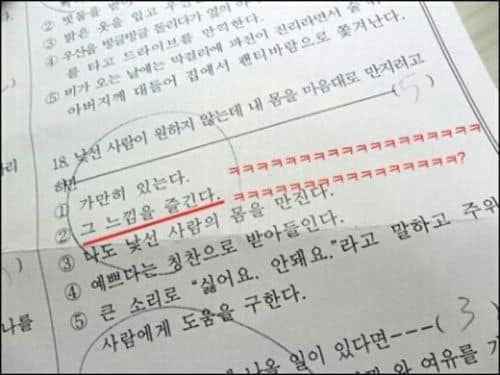 ② 빗물을 입고 우산
③ 밝은 옷을 입고
④ 우산을 빙글빙글 돌리다가 옆의
를 타고 드라이브를 만끽한다.
⑤ 비가 오는 날에는 막걸리에 파전이 진리라면서
아버지께 대들어 집에서 팬티바람으로 쫓겨난다.
18. 낯선 사람이 원하지 않는데 내 몸을 마음대로 만지려고
하면 ( 5 )
① 가만히 있는다. ㅋㅋㅋㅋㅋㅋㅋㅋㅋㅋㅋㅋㅋㅋㅋㅋㅋㅋ
② 그 느낌을 즐긴다. ㅋㅋㅋㅋㅋㅋㅋㅋㅋㅋㅋㅋㅋㅋㅋㅋ?
③ 나도 낯선 사람의 몸을 만진다.
④ 예쁘다는 칭찬으로 받아들인다.
⑤ 큰 소리로 "싫어요. 안돼요."라고 말하고 주위
사람에게 도움을 구한다.
나를
나올 일이 있다면---( 3 )
여유를